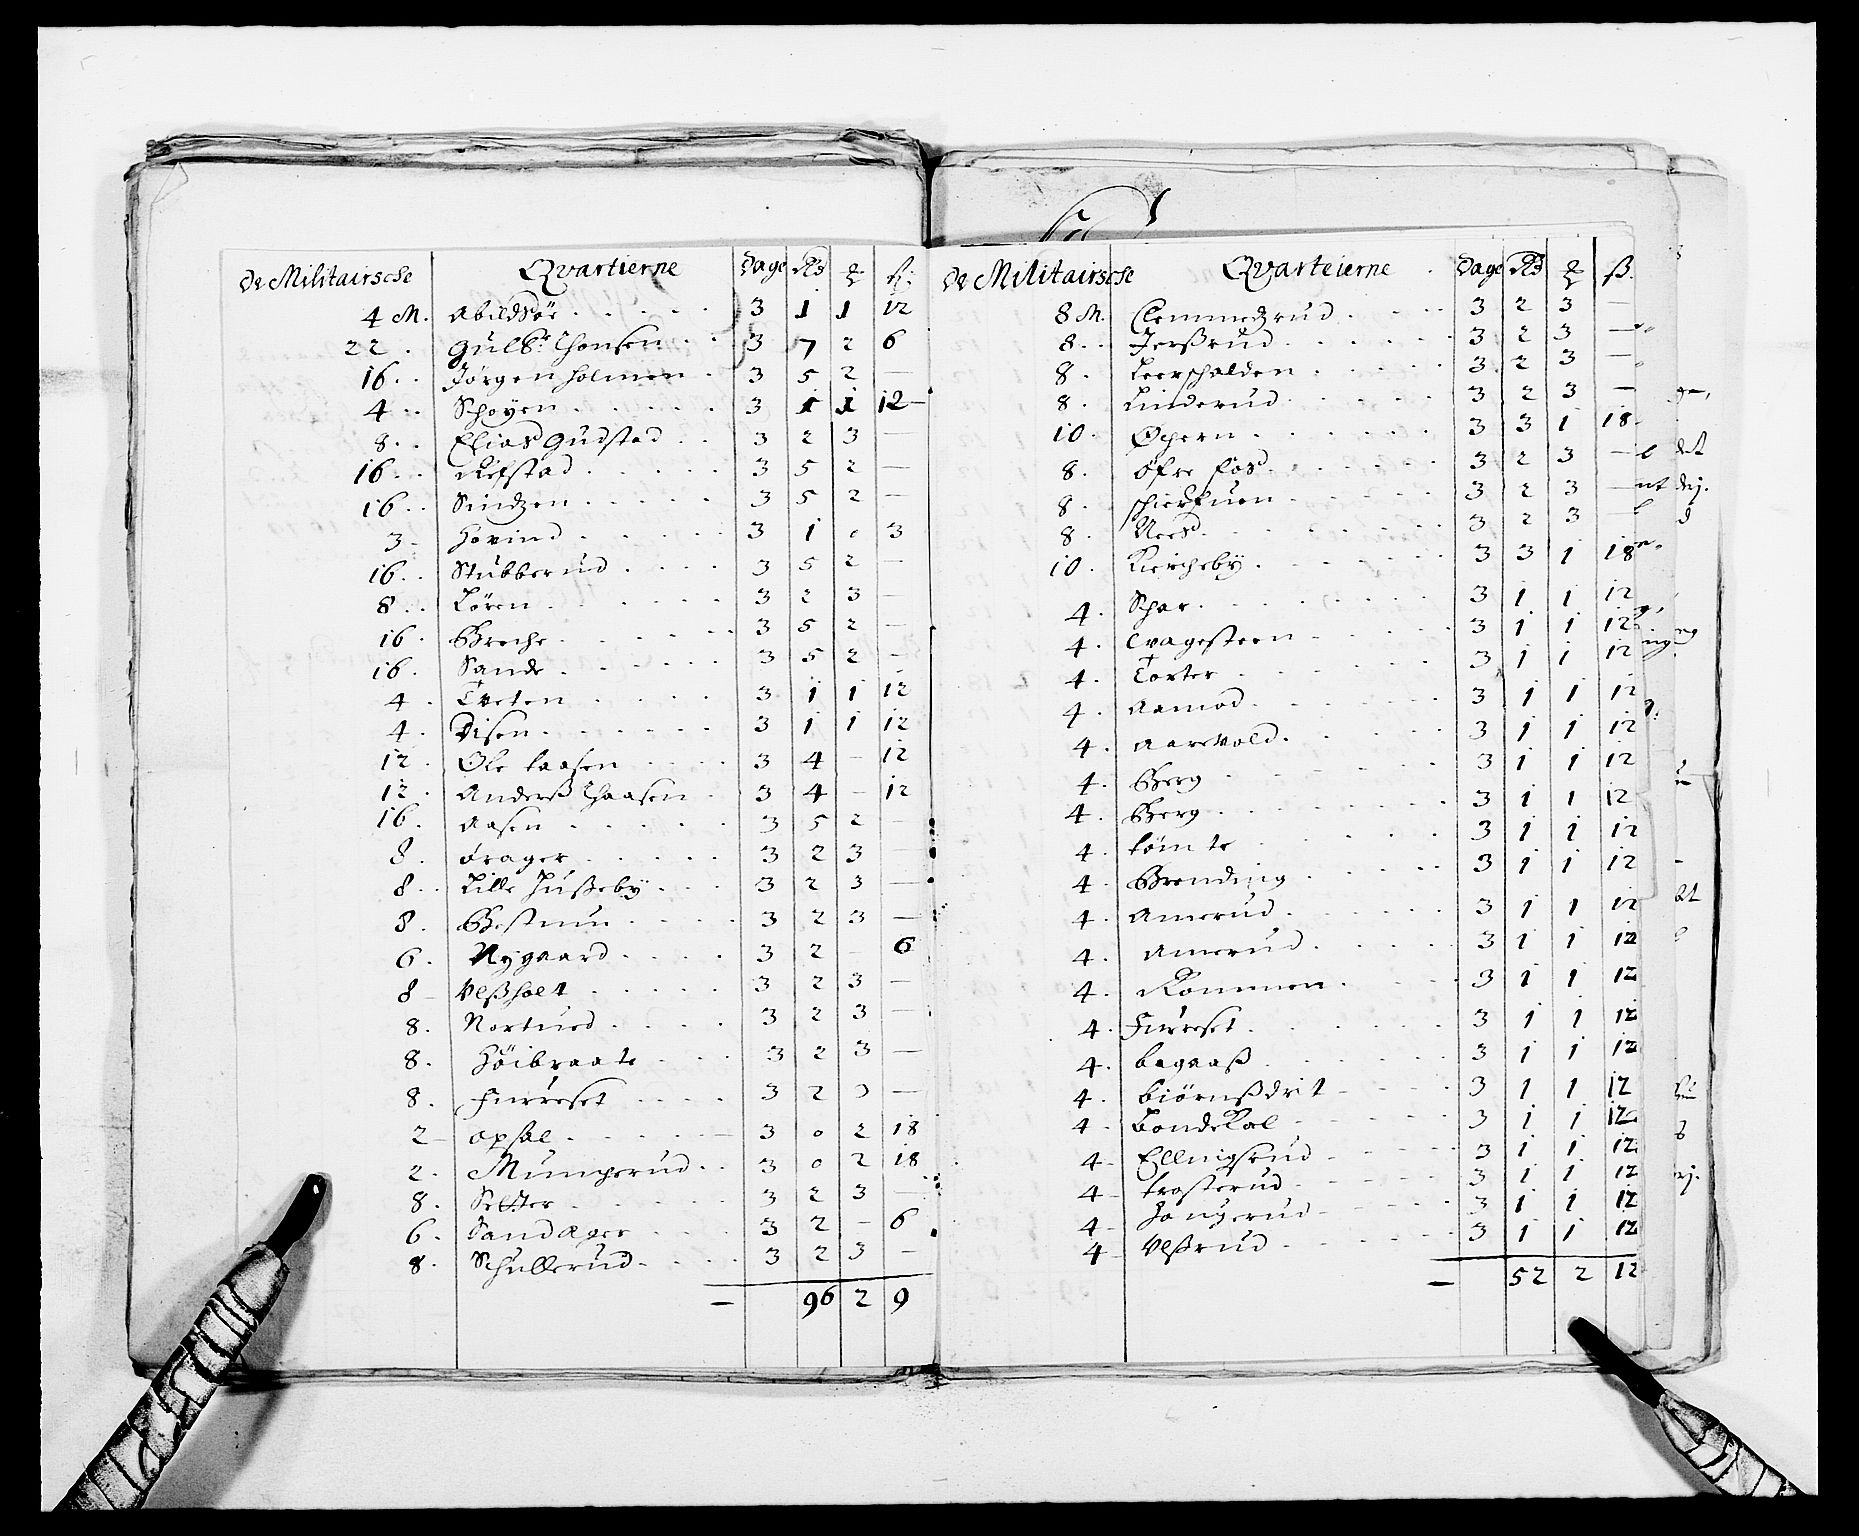 de Militairsche Qvartierne Dage Rd ß:
4 M. Abildsøe 3 1 1 12
22. Gulb: Thonsen 3 7 2 6
16. Jørgen Holmen 3 5 2 —
4. Schøyen 3 1 1 12
8. Elias Gudstad 3 2 3 —
16. Refstad 3 5 2 —
16. Sindzen 3 5 2 —
3. Hovind 3 1 0 3
16. Stubberud 3 5 2 —
8. Løren 3 2 3 —
16. Breche 3 5 2 —
16. Sande 3 5 2 —
4. Tveten 3 1 1 12
4. Disen 3 1 1 12
12. Ole Aasen 3 4 — 12
12. Anderß Haasen 3 4 — 12
16. Aasen 3 5 2 —
8. Ørager 3 2 3 —
8. Lille Hußeby 3 2 3 —
8. Bestuun 3 2 3 —
6. Nygaard 3 2 — 6
8 Vlßholt 3 2 3 —
8. Nortued 3 2 3 —
8. Høibraate 3 2 3 —
8. Furreset 3 2 3 —
2 opsal 3 0 2 18
2. Muncherud 3 0 2 18
8. Setter 3 2 3 —
6. Sandager 3 2 — 6
8. Schullerud 3 2 3 —
— 96 2 9
de Militairsche Qvarteierne Dage Rd ß.
8 M. Clemmedzrud 3 2 3 —
8. Jerßrud 3 2 3 —
8. Leerschalden 3 2 3 —
8. Linderud 3 2 3 —
10. Øchern 3 3 1 18
8. øfre Foß 3 2 3 —
8. schierfuen 3 2 3 —
8. Nees 3 2 3 —
10. Kiercheby 3 3 1 18
4. Schar 3 1 1 12
4. Tvagesteen 3 1 1 12
4. Torter 3 1 1 12
4. Aamod 3 1 1 12
4. Aarevold 3 1 1 12
4. Berg 3 1 1 12
4. Berg 3 1 1 12
4. tømte 3 1 1 12
4. Brending 3 1 1 12
4. Amerud 3 1 1 12
4. Amerud 3 1 1 12
4. Rommen 3 1 1 12
4. Furreset 3 1 1 12
4. bagaaß 3 1 1 12
4. biørnßdrit 3 1 1 12
4. Bondekal 3 1 1 12
4. Ellingsrud 3 1 1 12
4 trosterud 3 1 1 12
4 Haugerud 3 1 1 12
4 Vlßrud 3 1 1 12
— 52 2 12